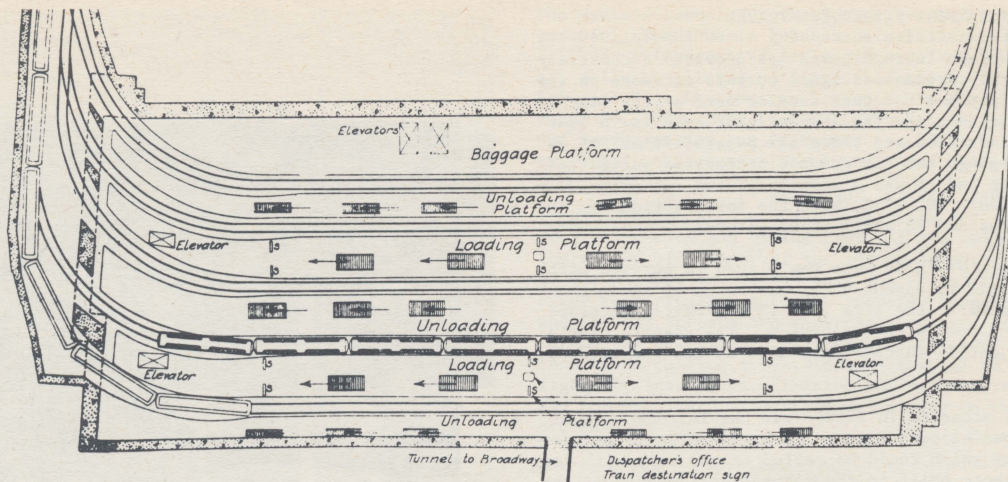 Elevators
Baggage Platform
Unloading
Platform
Elevator
S
Loading
S
Platform
S
Elevator
S
S
S
Unloading Platform
Elevator
S
Loading
S
Platform
S
Elevator
S
S
S
Unloading
Platform
Tunnel to Broadway
Dispatcher's office
Train destination sign